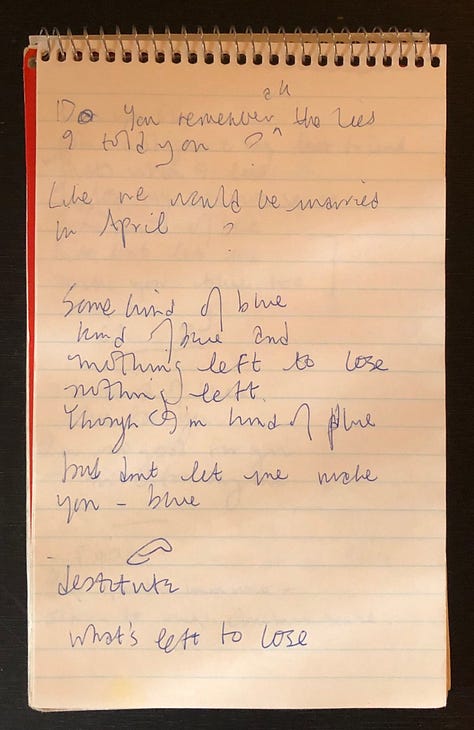 Do you remember all the lies
I told you ?
Like we would be married
in April ?
Some kind of blue
kind of blue and
nothing left to lose
nothing left.
Though I'm kind of blue
but dont let me make
you - blue
destitute
what's left to lose